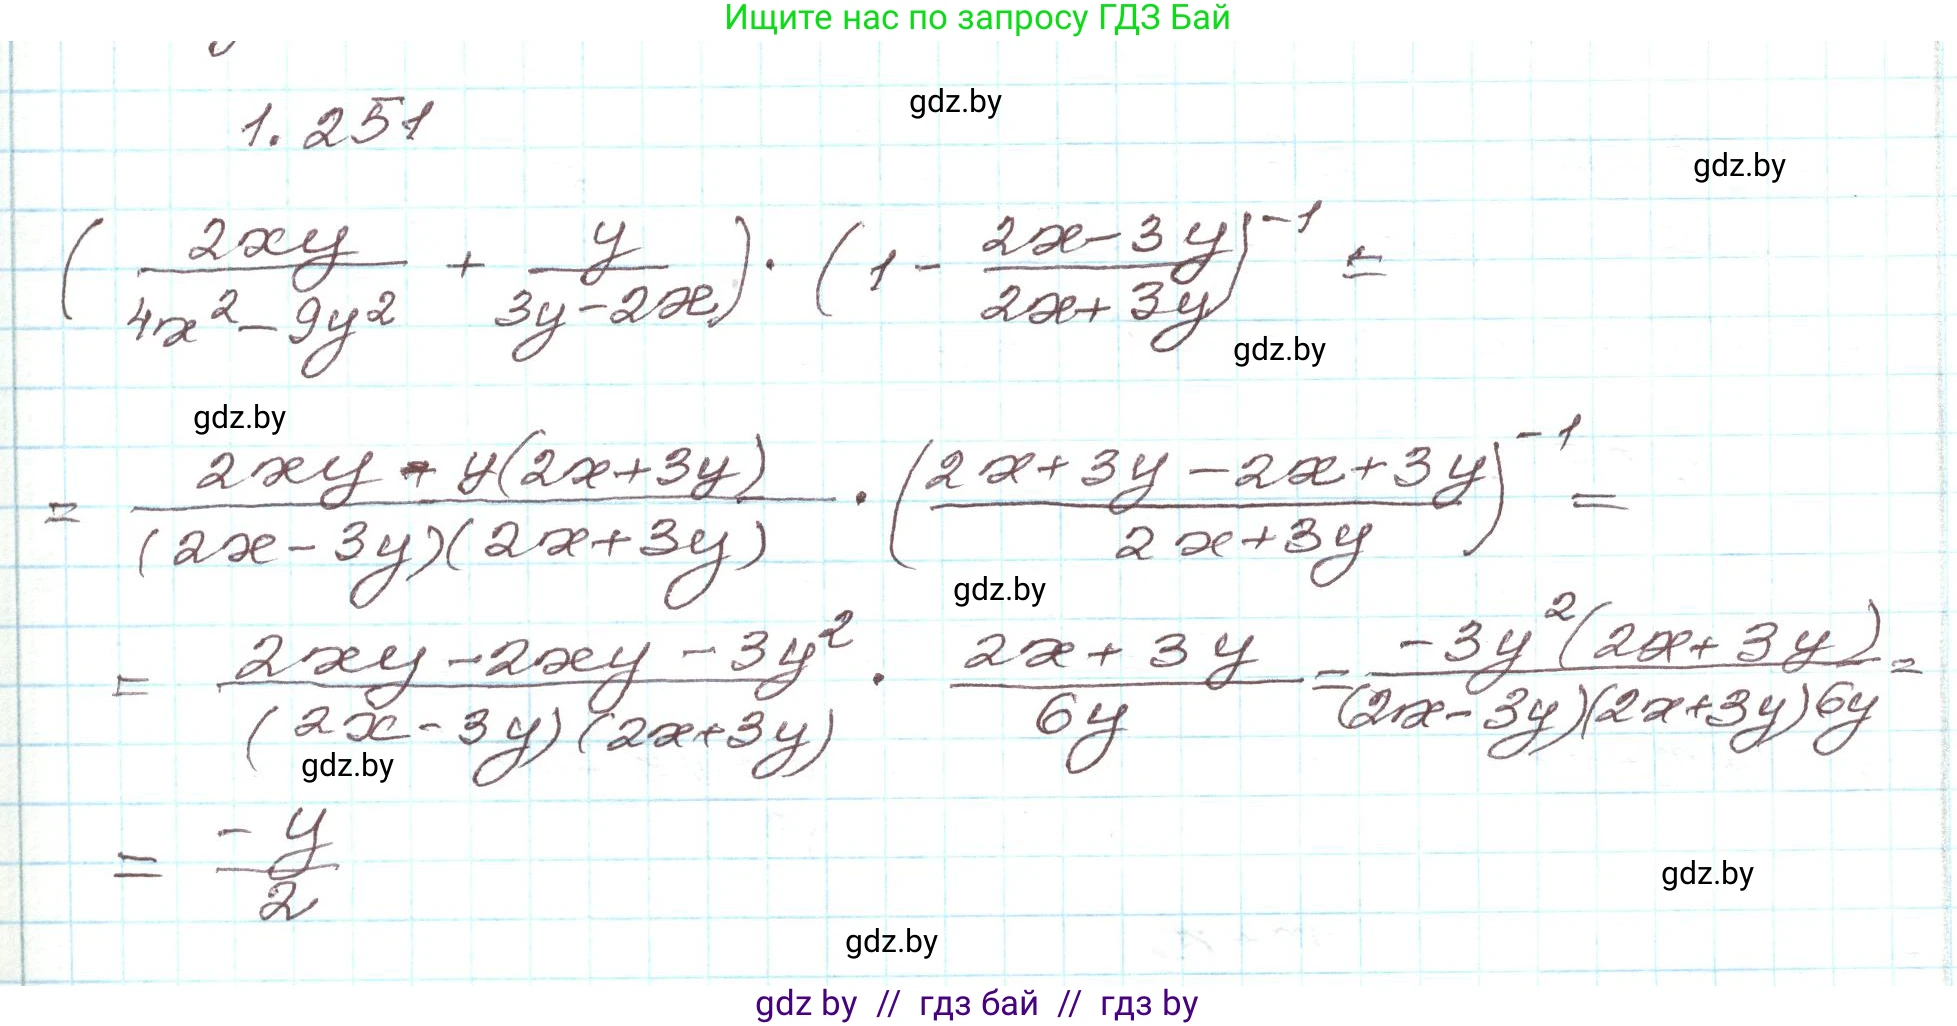 Ищите нас по запросу ГДЗ Бай
gdz.by
1.251
gdz.by
(2xy/(4x² - 9y²) + y/(3y - 2x)) · (1 - (2x - 3y)/(2x + 3y))⁻¹ =
gdz.by
gdz.by
= (2xy - y(2x + 3y))/((2x - 3y)(2x + 3y)) · ((2x + 3y - 2x + 3y)/(2x + 3y))⁻¹ =
gdz.by
= (2xy - 2xy - 3y²)/((2x - 3y)(2x + 3y)) · (2x + 3y)/(6y) = (-3y²(2x + 3y))/((2x - 3y)(2x + 3y)6y) =
gdz.by
= (-y)/2
gdz.by
gdz.by
gdz by // гдз бай // гдз by